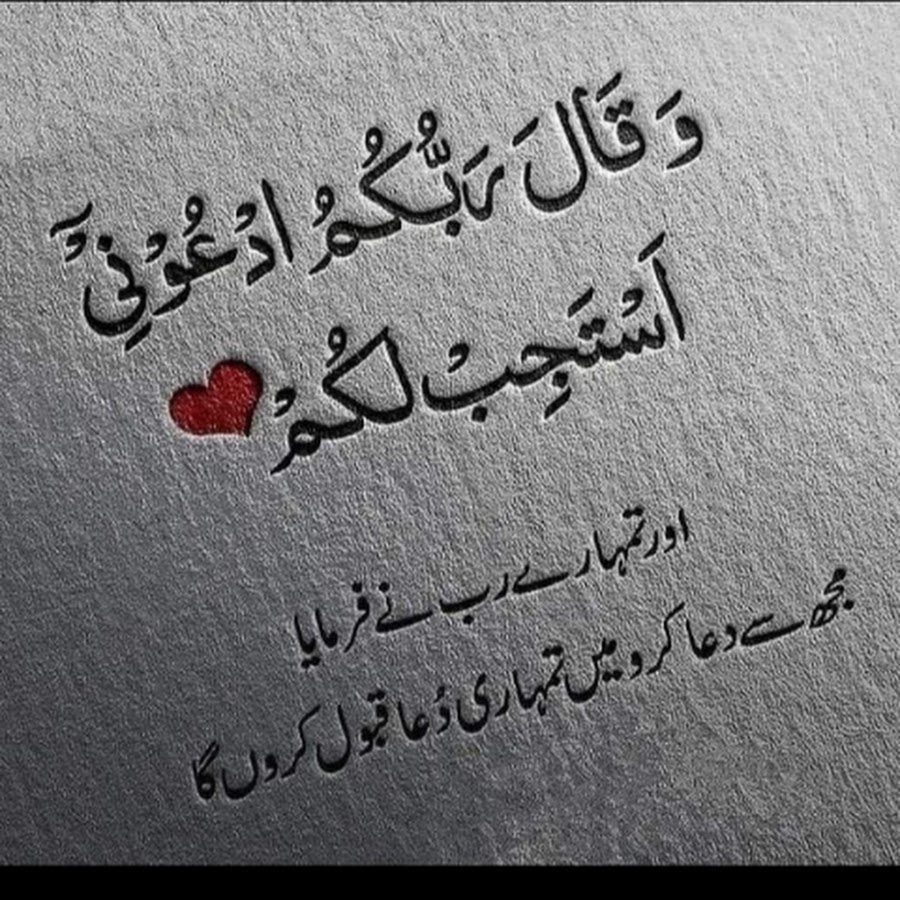 وَ قَالَ رَبُّكُمُ ادْعُوْنِیْۤ
اَسْتَجِبْ لَكُمْ
اور تمہارے رب نے فرمایا
مجھ سے دعا کرو میں تمہاری دُعا قبول کروں گا